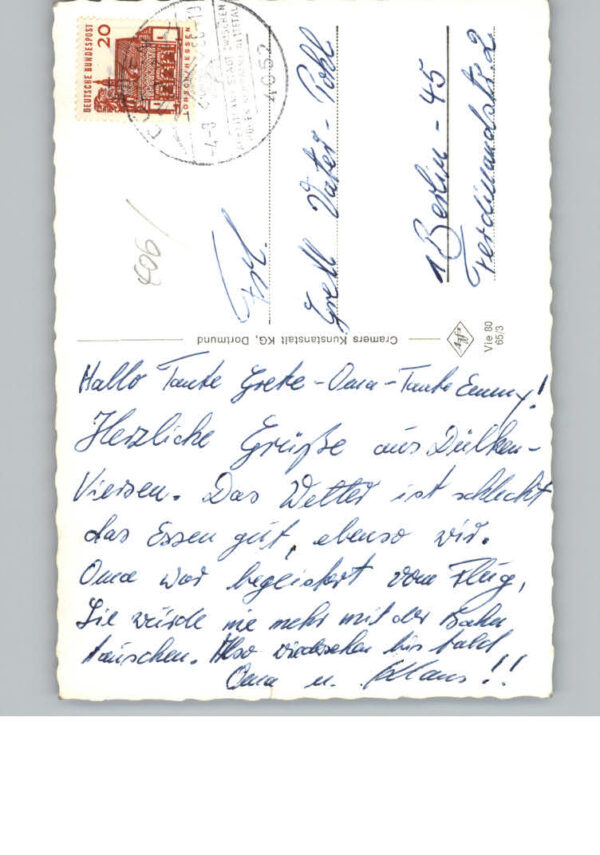 Hallo Tante Grete - Oma - Tante Emmy!
Herzliche Grüße aus Dülken-
Viersen. Das Wetter ist schlecht
das Essen gut, ebenso wir.
Oma war begeistert vom Flug,
Sie würde nie mehr mit der Bahn
tauschen. Also wiedersehen bis bald
Oma u. Klaus!!
Cramers Kunstanstalt KG, Dortmund
Vie 80
65/3
406/
Frl.
Gretl Vater-Pohl
1 Berlin-45
Ferdinandstr. 2
DEUTSCHE BUNDESPOST
20
LORSCH/HESSEN
4052